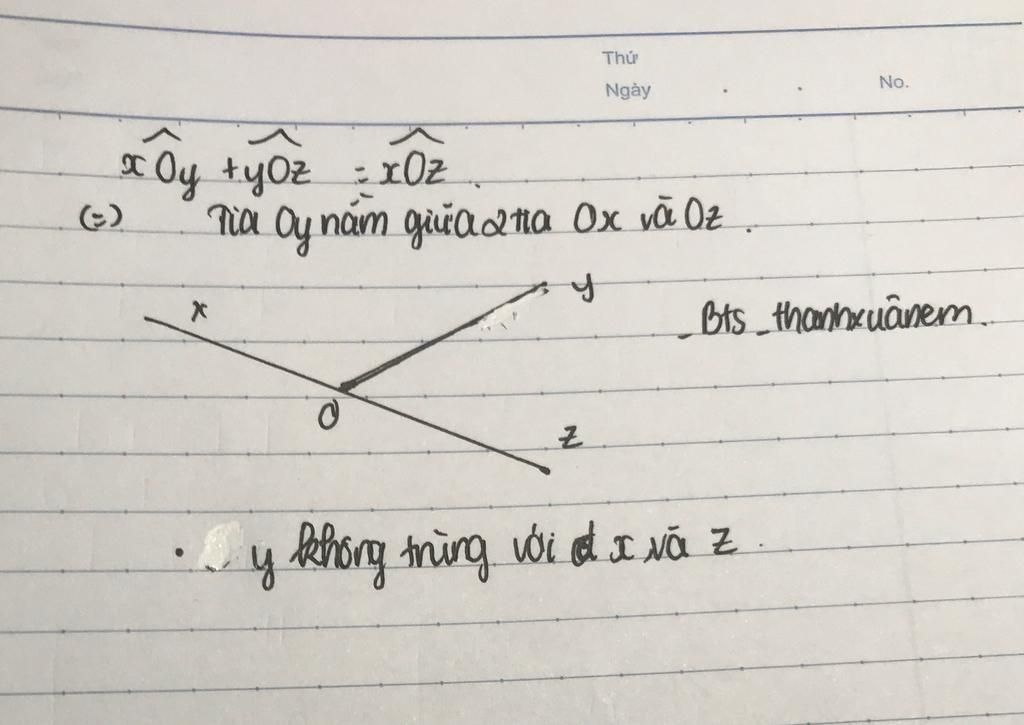 Thứ
Ngày . . No.
xOy + yOz = xOz.
(=) Tia Oy nằm giữa 2 tia Ox và Oz.
x
y
_Bts_thanhxuânem.
O
z
• y không trùng với x và z.